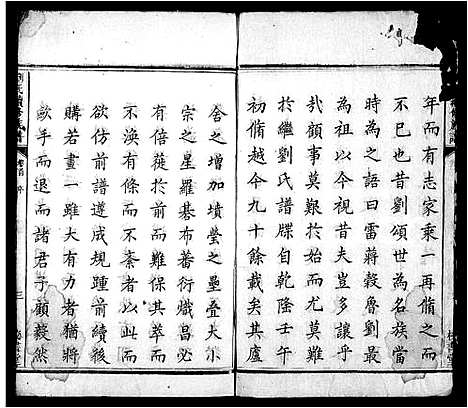 年而有志家乘一再脩之而
不已也昔劉頌世為名族當
時為之語曰雷蔣穀魯劉最
為祖以今視昔夫豈多讓乎
㢤顧事莫艱於始而尤莫難
於繼劉氏譜牒自乾隆壬午
初脩越今九十餘載矣其廬
舍之增加墳塋之壘叠大小
宗之星羅碁布蕃衍熾昌必
有倍蓰於前而難保其萃而
不渙有條而不紊者以此而
欲仿前譜遵成規踵前續後
購若畫一雖大有力者猶將
歛手而退而諸君子顧毅然
卷首
序
三